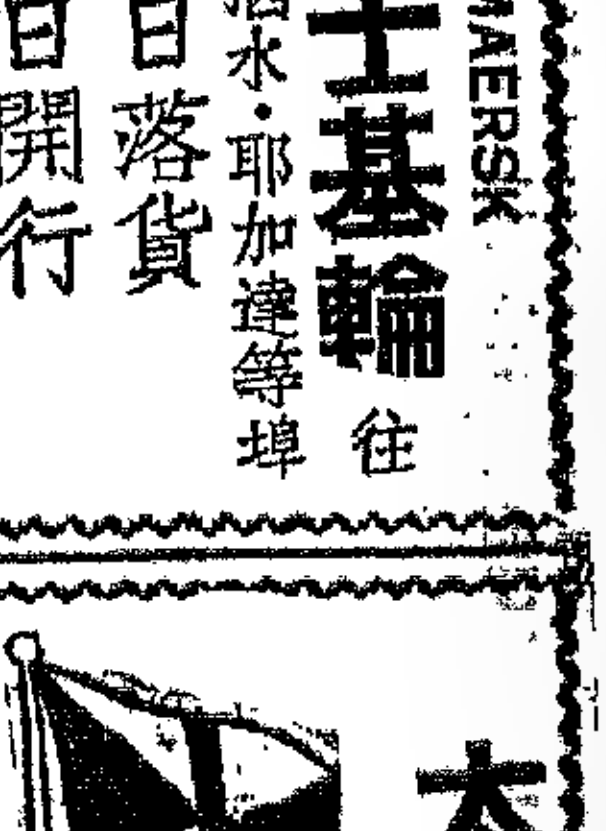 MAERSK
士基輪往
水・耶加達等埠
日落貨
日開行